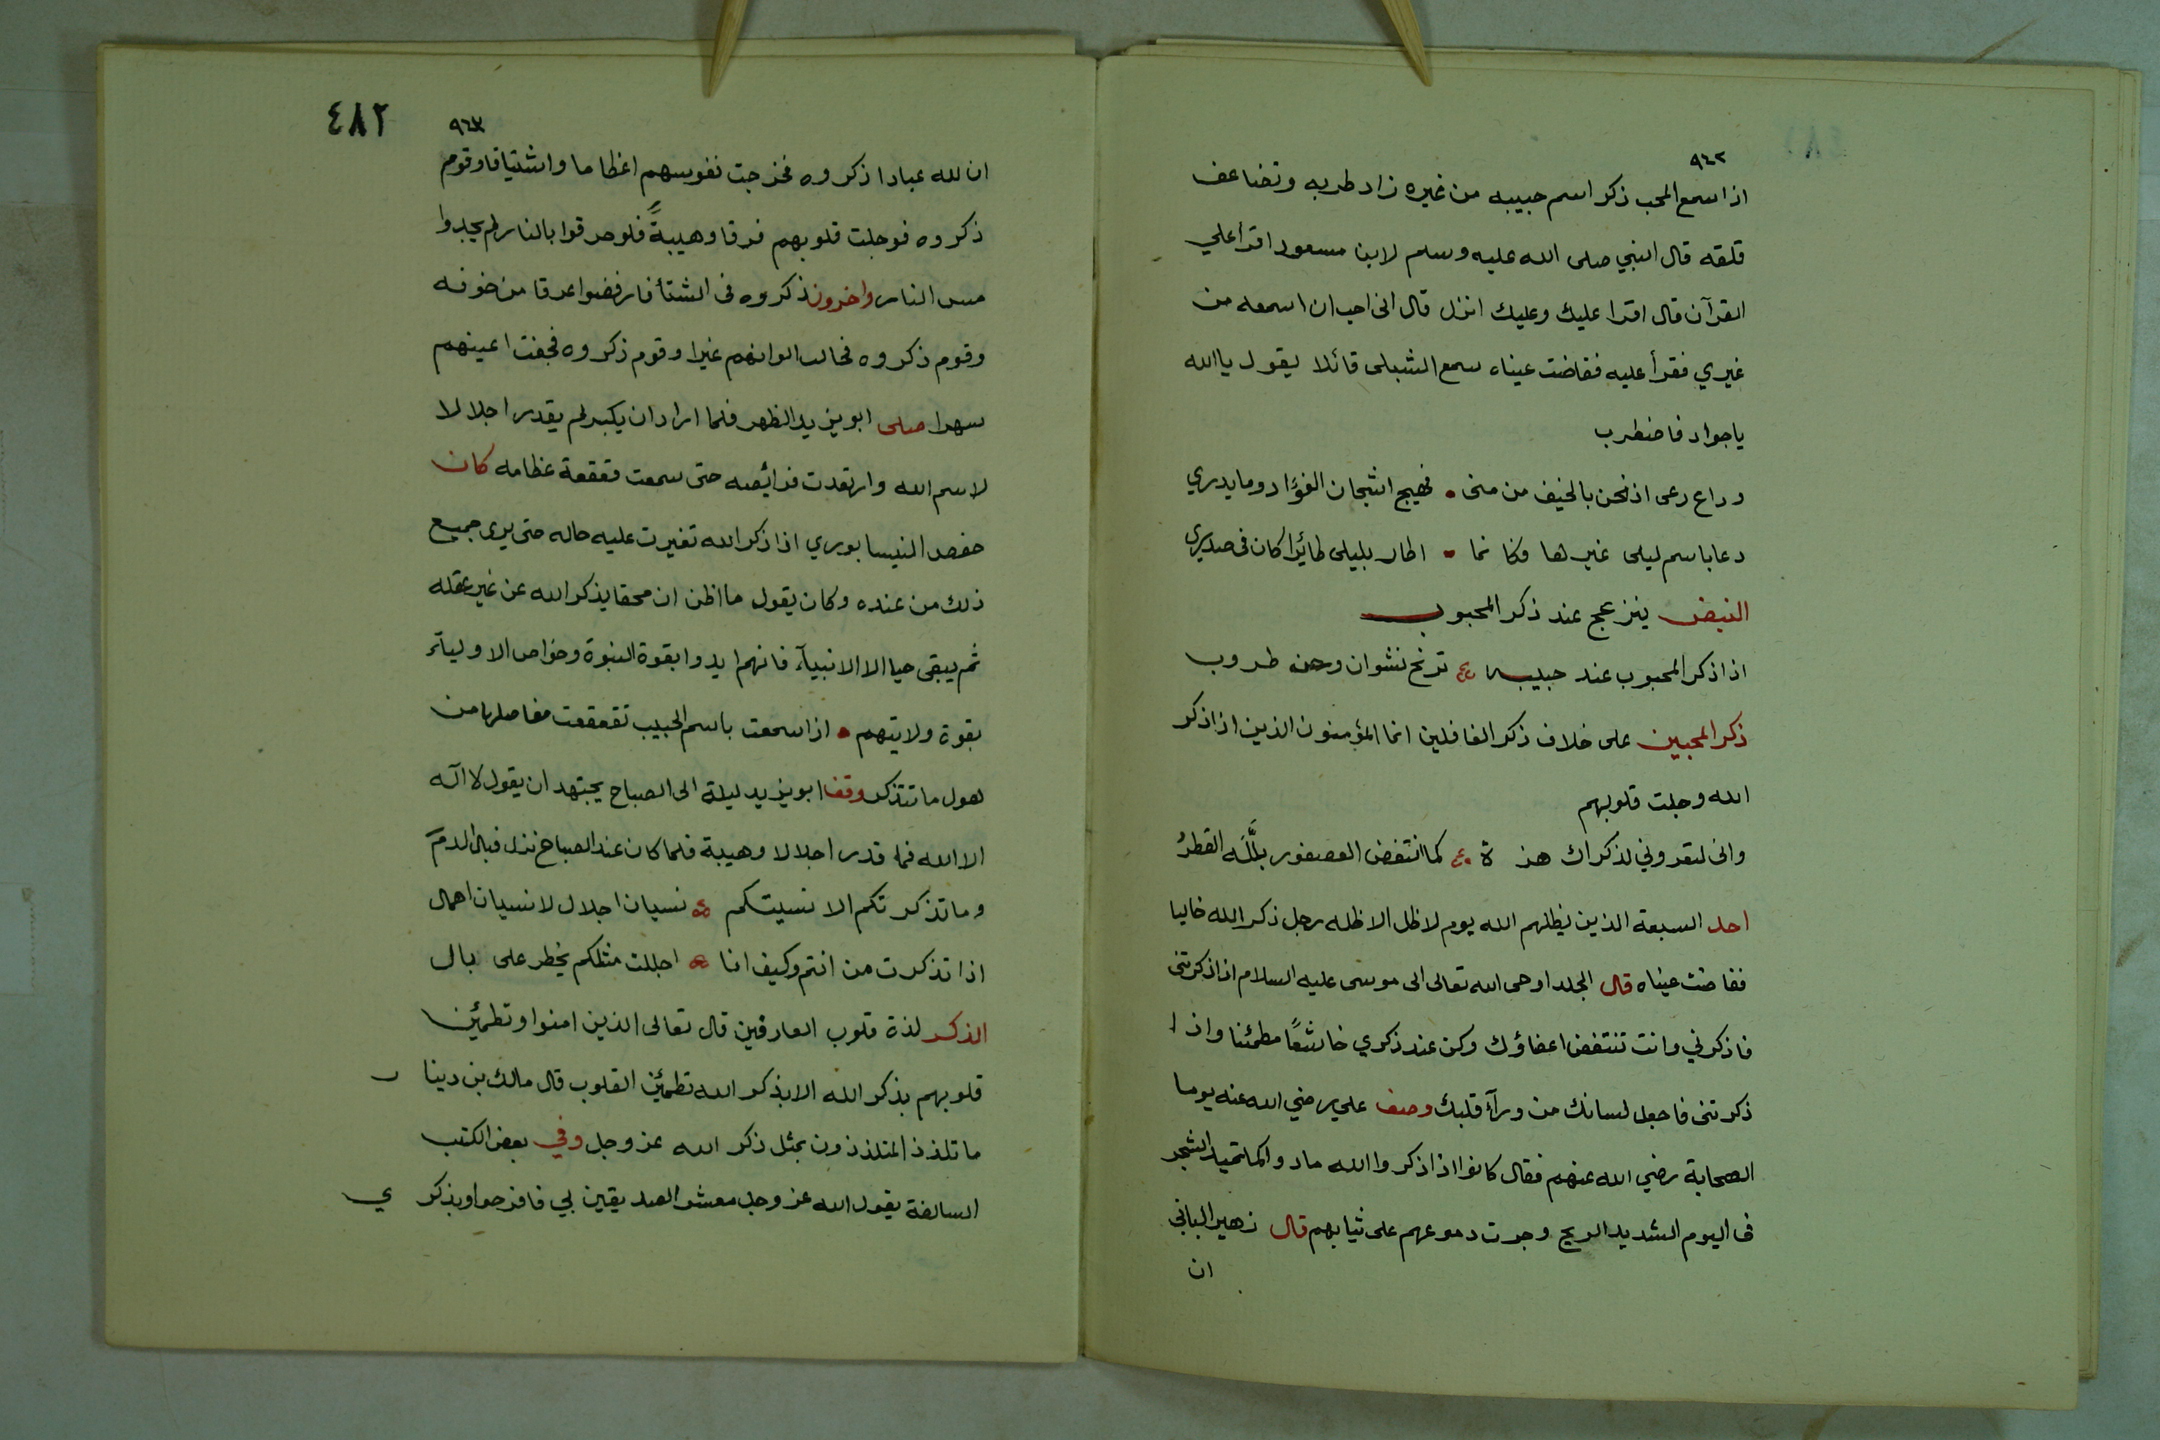 ٩٤٢
اذا سمع المحب ذكر اسم حبيبه من غيره زاد طربه وتضاعف
قلقه قال النبي صلى الله عليه وسلم لابن مسعود اقرأ علي
القرآن قال اقرا عليك وعليك انزل قال انى احب ان اسمعه من
غيري فقرأ عليه ففاضت عيناه سمع الشبلى قائلا يقول يا الله
يا جواد فاضطرب
وداع دعى اذ نحن بالخيف من منى • فهيج اشجان الفؤاد وما يدري
دعا باسم ليلى غيرها وكا نما • اطار بليلى طائرا كان فى صدري
النبض ينزعج عند ذكر المحبوب
اذا ذكر المحبوب عند حبيبه ترنح نشوان وحن طروب
ذكر المحبين على خلاف ذكر الغافلين انما المؤمنون الذين اذا ذكر
الله وجلت قلوبهم
وانى لتعروني لذكراك هز ة كما انتفض العصفور بلَّلَه القطرُ
احد السبعة الذين يظلهم الله يوم لا ظل الا ظله رجل ذكر الله خاليا
ففاضت عيناه قال الجلد اوحى الله تعالى الى موسى عليه السلام اذا ذكرتنى
فاذكرني وانت تنتفض اعضاؤك وكن عند ذكري خاشعًا مطمئنا واذ ا
ذكرتنى فاجعل لسانك من ورآء قلبك وصف علي رضي الله عنه يوما
الصحابة رضي الله عنهم فقال كانوا اذا ذكروا الله مادوا كما تميد الشجر
فى اليوم الشديد الريح وجرت دموعهم على ثيابهم قال زهير البانى
ان
٤٨٢
٩٤٣
ان لله عبادا ذكروه فخرجت نفوسهم اعظاما واشتياقا وقوم
ذكروه فوجلت قلوبهم فرقا وهيبةً فلو حرقوا بالنار لم يجدوا
مس النار واخرون ذكروه فى الشتأ فارفضوا عرقا من خوفه
وقوم ذكروه فحالت الوانهم غبرا وقوم ذكروه فجفت اعينهم
سهرا صلى ابو يزيد الظهر فلما اراد ان يكبر لم يقدر اجلالا
لاسم الله وارتعدت فرائصه حتى سمعت قعقعة عظامه كان
حفص النيسابوري اذا ذكر الله تغيرت عليه حاله حتى يرى جميع
ذلك من عنده وكان يقول ما اظن ان محقا يذكر الله عن غير عقله
ثم يبقى حيا الا الانبيآء فانهم ايدوا بقوة النبوة وخواص الاوليآء
بقوة ولايتهم • اذا سمعت باسم الحبيب تقعقعت مفاصلها من
هول ما تتذكر وقف ابو يزيد ليلة الى الصباح يجتهد ان يقول لا آله
الا الله فما قدر اجلالا وهيبة فلما كان عند الصباح نزل فبال الدم
وما تذكرتكم الا نسيتكم نسيان اجلال لا نسيان اهمال
اذا تذكرت من انتم وكيف انا اجللت مثلكم يخطر على بال
الذكر لذة قلوب العارفين قال تعالى الذين امنوا وتطمئن
قلوبهم بذكر الله الا بذكر الله تطمئن القلوب قال مالك بن دينا ر
ما تلذذ المتلذذون بمثل ذكر الله عز وجل وفي بعض الكتب
السالفة يقول الله عز وجل معشر الصديقين بي فافرحوا وبذكر ي